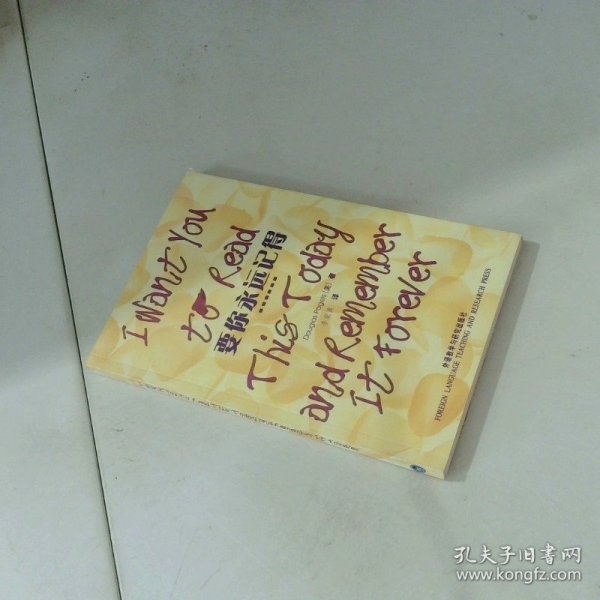 I Want You
to Read
要你永远记得
This Today
Douglas Pagels [美] 著
译
and Remember
It Forever
外语教学与研究出版社
FOREIGN LANGUAGE TEACHING AND RESEARCH PRESS
孔夫子旧书网
www.kongfz.com